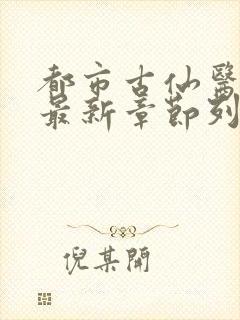 都市古仙醫
最新章節列
倪某開